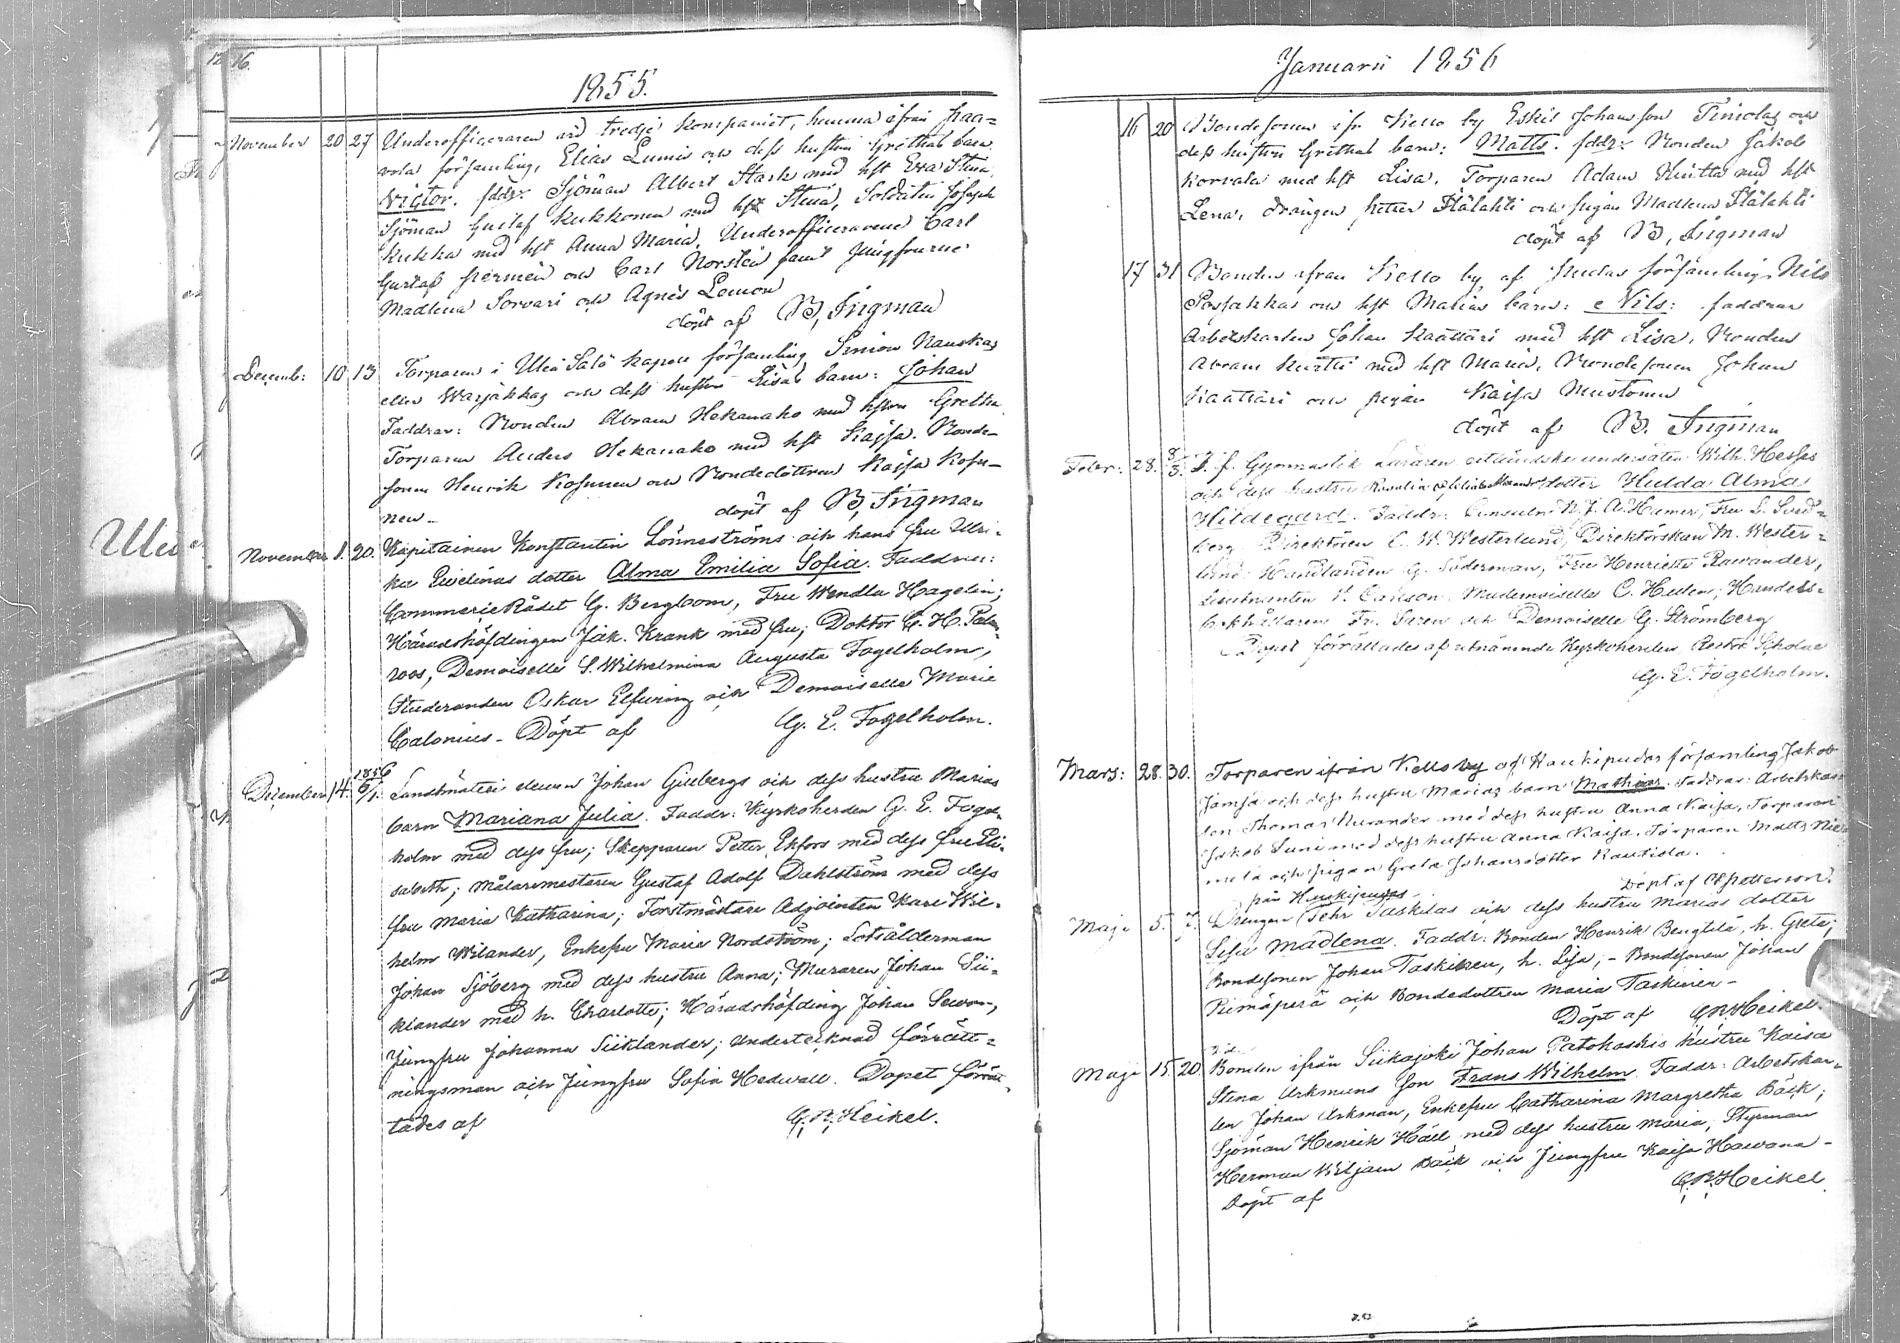 12 76.
1855.
November 20 27 Underofficeraren vid tredje kompaniet, hemma ifrån Paa=
vola församling, Elias Lumis och dess hustru Grethas barn
Victor. fddr: Sjöman Albert Stark med hst Eva Stina,
Sjöman Gustaf Kukkonen med hst Stina, Soldaten Joseph
Kukka med hst Anna Maria, Underofficerarene Carl
Gustaf Hermein och Carl Norstén samt Jungfrurne
Madlena Sorvari och Agnes Lemon
döpt af B, Ingman
Decemb: 10 13 Torparen i Uleå Salo kapell församling Simon Nauskas
eller Warjakkas och dess hustru Lisas barn: Johan
Faddrar: Bonden Abram Hekanaho med hstru Gretha
Torparen Anders Hekanaho med hst Kajsa. Bonde-
sonen Henrik Kosunen och Bondedottren Kajsa Kosu-
nen- döpt af B, Ingman
November 1. 20. Kapitainen Konstantin Lönneströms och hans fru Ulri-
ka Evelinas dotter Alma Emilia Sofia. Faddrar:
CommerieRådet G. Bergbom, Fru Wendla Hagelin;
Häradshöfdingen Jak. Krank med fru; Doktor C. H. Palm-
roos, Demoiselle S. Wilhelmina Augusta Fogelholm,
Studeranden Oskar Elfving och Demoiselle Marie
Calonius- Döpt af G. E. Fogelholm.
December 14. 1856 6/1. Landtmäteri eleven Johan Gusbergs och dess hustru Marias
barn Mariana Julia. Faddr: Kyrkoherden G. E. Fogel-
holm med dess fru; Skepparen Petter Ekfors med dess fru Eli-
sabeth; Målaremästaren Gustaf Adolf Dahlström med dess
fru Maria Katharina; Forstmästare Adjointen Karl Wil-
helm Wilander, Enkefru Maria Nordström; Lotsålderman
Johan Sjöberg med dess hustru Anna; Muraren Johan Sii-
klander med h. Charlotte; Häradshöfding Johan Sewon,
Jungfru Johanna Siiklander; undertecknad förrätt-
ningsman och Jungfru Sofia Hedwall. Dopet förrät-
tades af C. R. Heikel.
Januarii 1856
16 20 Bondesonen ifr Kello by Eskil Johansson Timolas och
dess hustru Grethas barn: Matts. fddr: Bonden Jakob
Korvala med hst Lisa, Torparen Adam Huitta med hst
Lena, drängen Petter Hälahti och pigan Madlena Hälahti
döpt af B, Ingman
17 31 Bonden ifrån Kello by, af Haukipudas församling, Nils
och hst Marias barn: Nils: faddrar
Arbetskarlen Johan Kaattari med hst Lisa, Bonden
Abram Huitti med hst Maria, Bondesonen Johan
Kaattari och pigan Kaisa Mustonen
döpt af B. Ingman
Febr: 28. 8/3. T. f. Gymnastik Läraren utländske undersåten Wilh. Hesses
och dess hustru Rosalia dotter Hulda Alma
Hildegard. Faddr: Consuln N. J. A. Humer, Fru S. Sved-
berg Direktören C. W. Westerlund, Direktörskan M. Wester-
lund Handlanden G. Söderman, Fru Henriette Rawander,
Lieutnanten Carlson Mademoiselle C. Heden, Handels-
bokhållaren Fr. Suren och Demoiselle G. Strömberg
Dopet förrättades af utnämnde Kyrkoherden, Rector Scholae
G. E. Fogelholm.
Mars: 28. 30. Torparen ifrån Kello by af Haukipudas församling Jakob
Jämsä och dess hustru Marias barn Mathias. Faddrar: Arbetskar-
len Thomas Nurander med dess hustru Anna Kaisa, Torparen
Jakob Suni med dess hustru Anna Kaisa. Torparen Matts Nie-
melä och pigan Greta Johansdotter Rautiola.
Döpt af C. Petterson.
från Haukipudas-
Maji 5. 7. Drengen Pehr Taskilas och dess hustru Marias dotter
Lisu Madlena. Faddr: Bonden Henrik Bengtilä, h. Greta;
Bondesonen Johan Taskinen, h. Lisa; - Bondesonen Johan
Piimäperä och Bondedottren Maria Taskinen-
Döpt af C. R. Heikel.
Maji 15 20 Bonden ifrån Siikajoki Johan Patokoskis hustru Kaisa
Stina Arkmans son Frans Wilhelm. Faddr: Arbetskar-
len Johan Arkman, Enkefru Catharina Margretha Bäck;
Sjöman Henrik Häll med dess hustru Maria; Styrman
Herman Wiljam Bäck och Jungfru Kaisa Hawana-
Döpt af C. R. Heikel.